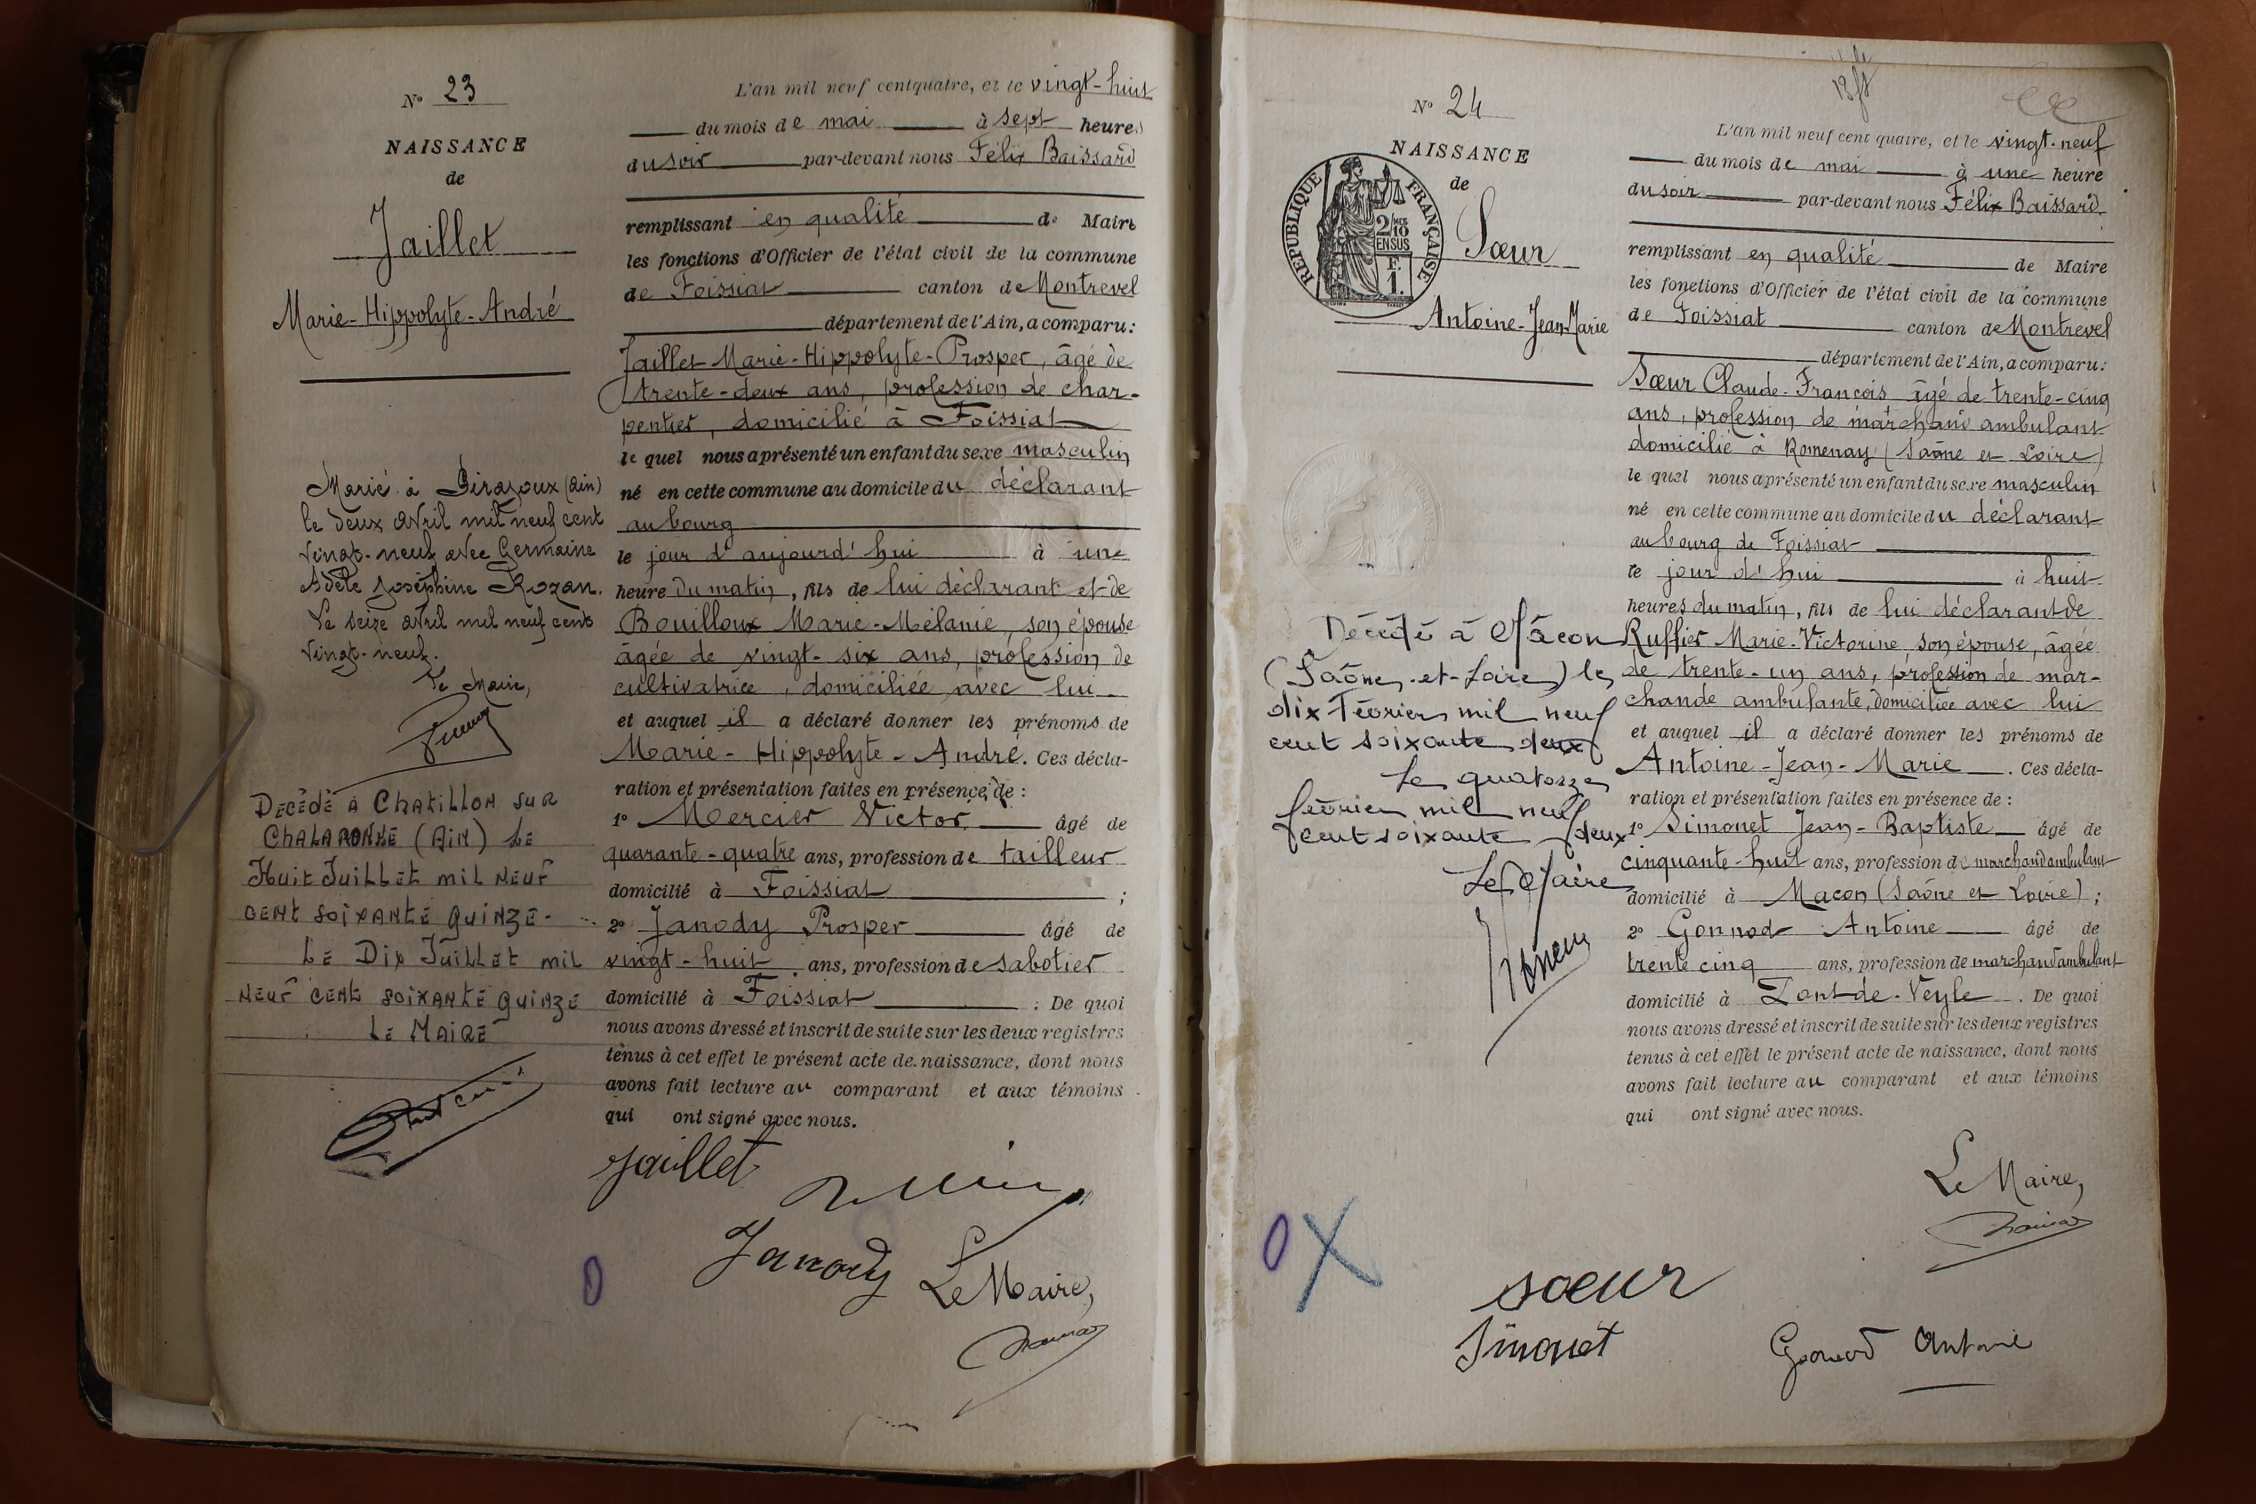 N° 23
NAISSANCE
de
Jaillet
Marie-Hippolyte-André
Marié à Pirajoux (Ain)
le deux avril mil neuf cent
vingt-neuf avec Germaine
Adèle Joséphine Rozan.
Le seize avril mil neuf cent
vingt-neuf.
Le Maire,
Décédé à Chatillon sur
Chalaronne (Ain) le
Huit Juillet mil neuf
cent soixante quinze-
Le Dix Juillet mil
neuf cent soixante quinze
Le Maire
L'an mil neuf cent quatre, et le vingt-huit
du mois de mai à sept heures
du soir par-devant nous Félix Baissard
remplissant en qualité de Maire
les fonctions d'Officier de l'état civil de la commune
de Foissiat canton de Montrevel
département de l'Ain, a comparu:
Jaillet Marie-Hippolyte-Prosper, âgé de
trente-deux ans, profession de char-
pentier, domicilié à Foissiat
le quel nous a présenté un enfant du sexe masculin
né en cette commune au domicile du déclarant
au bourg
le jour d'aujourd'hui à une
heure du matin, fils de lui déclarant et de
Bouilloux Marie-Mélanie, son épouse
âgée de vingt-six ans, profession de
cultivatrice, domiciliée avec lui
et auquel il a déclaré donner les prénoms de
Marie-Hippolyte-André. Ces décla-
ration et présentation faites en présence de:
1° Mercier Victor âgé de
quarante-quatre ans, profession de tailleur
domicilié à Foissiat ;
2° Janody Prosper âgé de
vingt-huit ans, profession de sabotier
domicilié à Foissiat : De quoi
nous avons dressé et inscrit de suite sur les deux registres
tenus à cet effet le présent acte de naissance, dont nous
avons fait lecture au comparant et aux témoins
qui ont signé avec nous.
Jaillet
Janody Le Maire,
N° 24
NAISSANCE
de
REPUBLIQUE FRANÇAISE
2/10 EN SUS
F. 1.
Sœur
Antoine-Jean-Marie
Décédé à Mâcon
(Saône-et-Loire) le
dix Février mil neuf
cent soixante deux
Le quatorze
février mil neuf
cent soixante deux
Le Maire
L'an mil neuf cent quatre, et le vingt-neuf
du mois de mai à une heure
du soir par-devant nous Félix Baissard
remplissant en qualité de Maire
les fonctions d'Officier de l'état civil de la commune
de Foissiat canton de Montrevel
département de l'Ain, a comparu:
Sœur Claude-François âgé de trente-cinq
ans, profession de marchand ambulant
domicilié à Romenay (Saône et Loire)
le quel nous a présenté un enfant du sexe masculin
né en cette commune au domicile du déclarant
au bourg de Foissiat
le jour d'hui à huit
heures du matin, fils de lui déclarant de
Ruffier Marie-Victorine, son épouse, âgée
de trente-un ans, profession de mar-
chande ambulante, domiciliée avec lui
et auquel il a déclaré donner les prénoms de
Antoine-Jean-Marie. Ces décla-
ration et présentation faites en présence de:
1° Simonet Jean-Baptiste âgé de
cinquante-huit ans, profession de marchand ambulant
domicilié à Macon (Saône et Loire) ;
2° Gonnod Antoine âgé de
trente cinq ans, profession de marchand ambulant
domicilié à Pont-de-Veyle. De quoi
nous avons dressé et inscrit de suite sur les deux registres
tenus à cet effet le présent acte de naissance, dont nous
avons fait lecture au comparant et aux témoins
qui ont signé avec nous.
Le Maire,
Sœur
Simonet
Gonnod Antoine